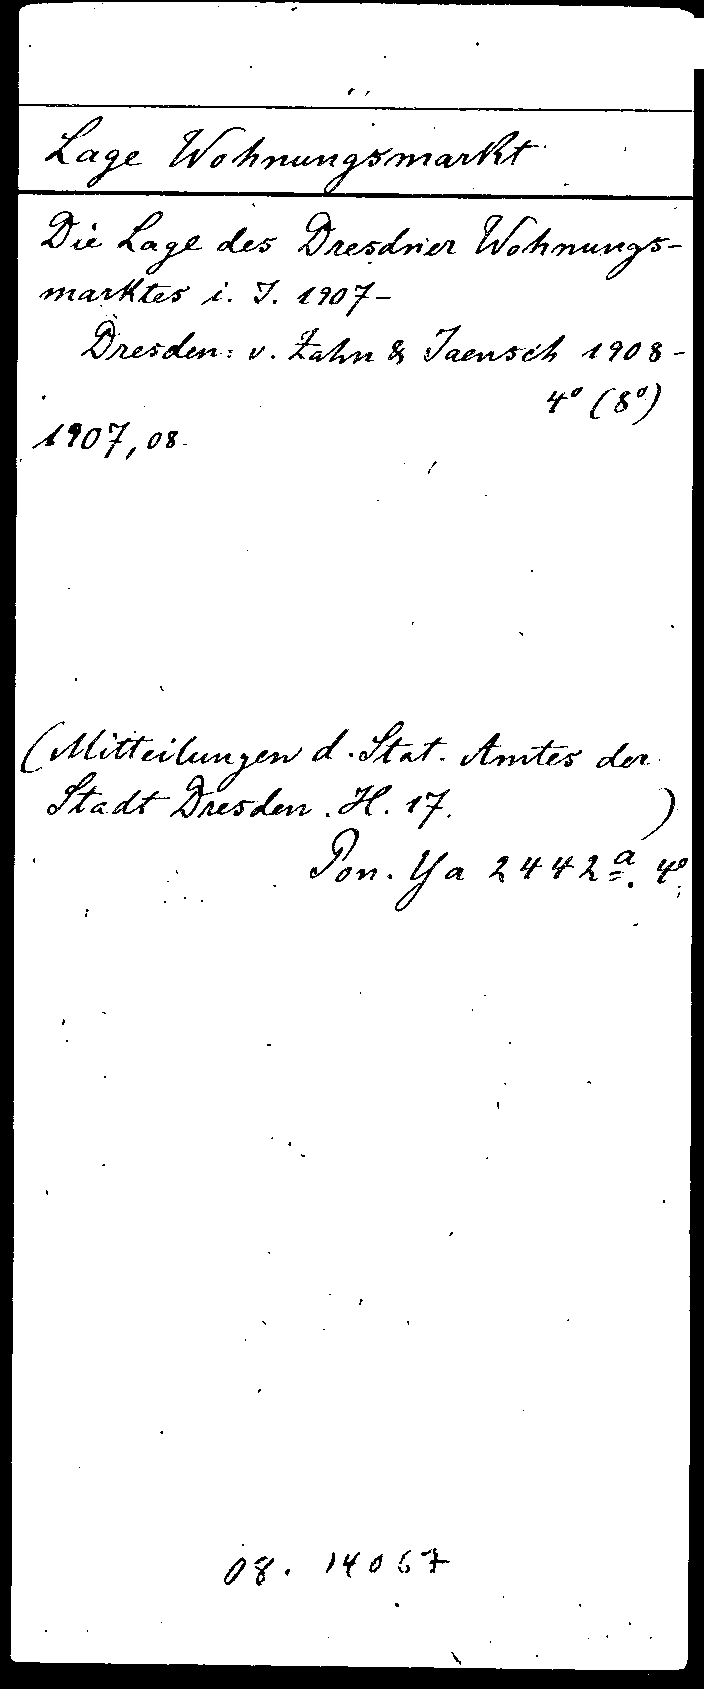 Lage Wohnungsmarkt
Die Lage des Dresdner Wohnungs-
marktes i. J. 1907-
Dresden: v. Zahn & Jaensch 1908-
4° (8°)
1907, 08.
(Mitteilungen d. Stat. Amtes der
Stadt Dresden. H. 17. )
Pon. Ya 2442a. 4°
08. 14067